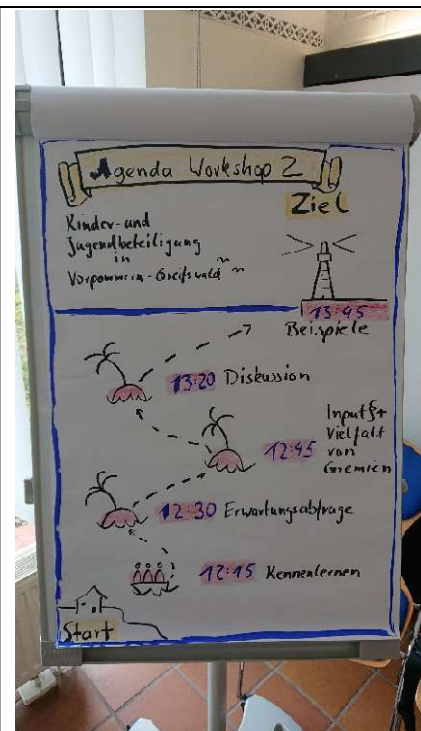 Agenda Workshop 2
Ziel
Kinder- und
Jugendbeteiligung
in
Vorpommern-Greifswald
13:45
Beispiele
13:20 Diskussion
Input §+
Vielfalt
von
Gremien
12:45
12:30 Erwartungsabfrage
12:15 Kennenlernen
Start